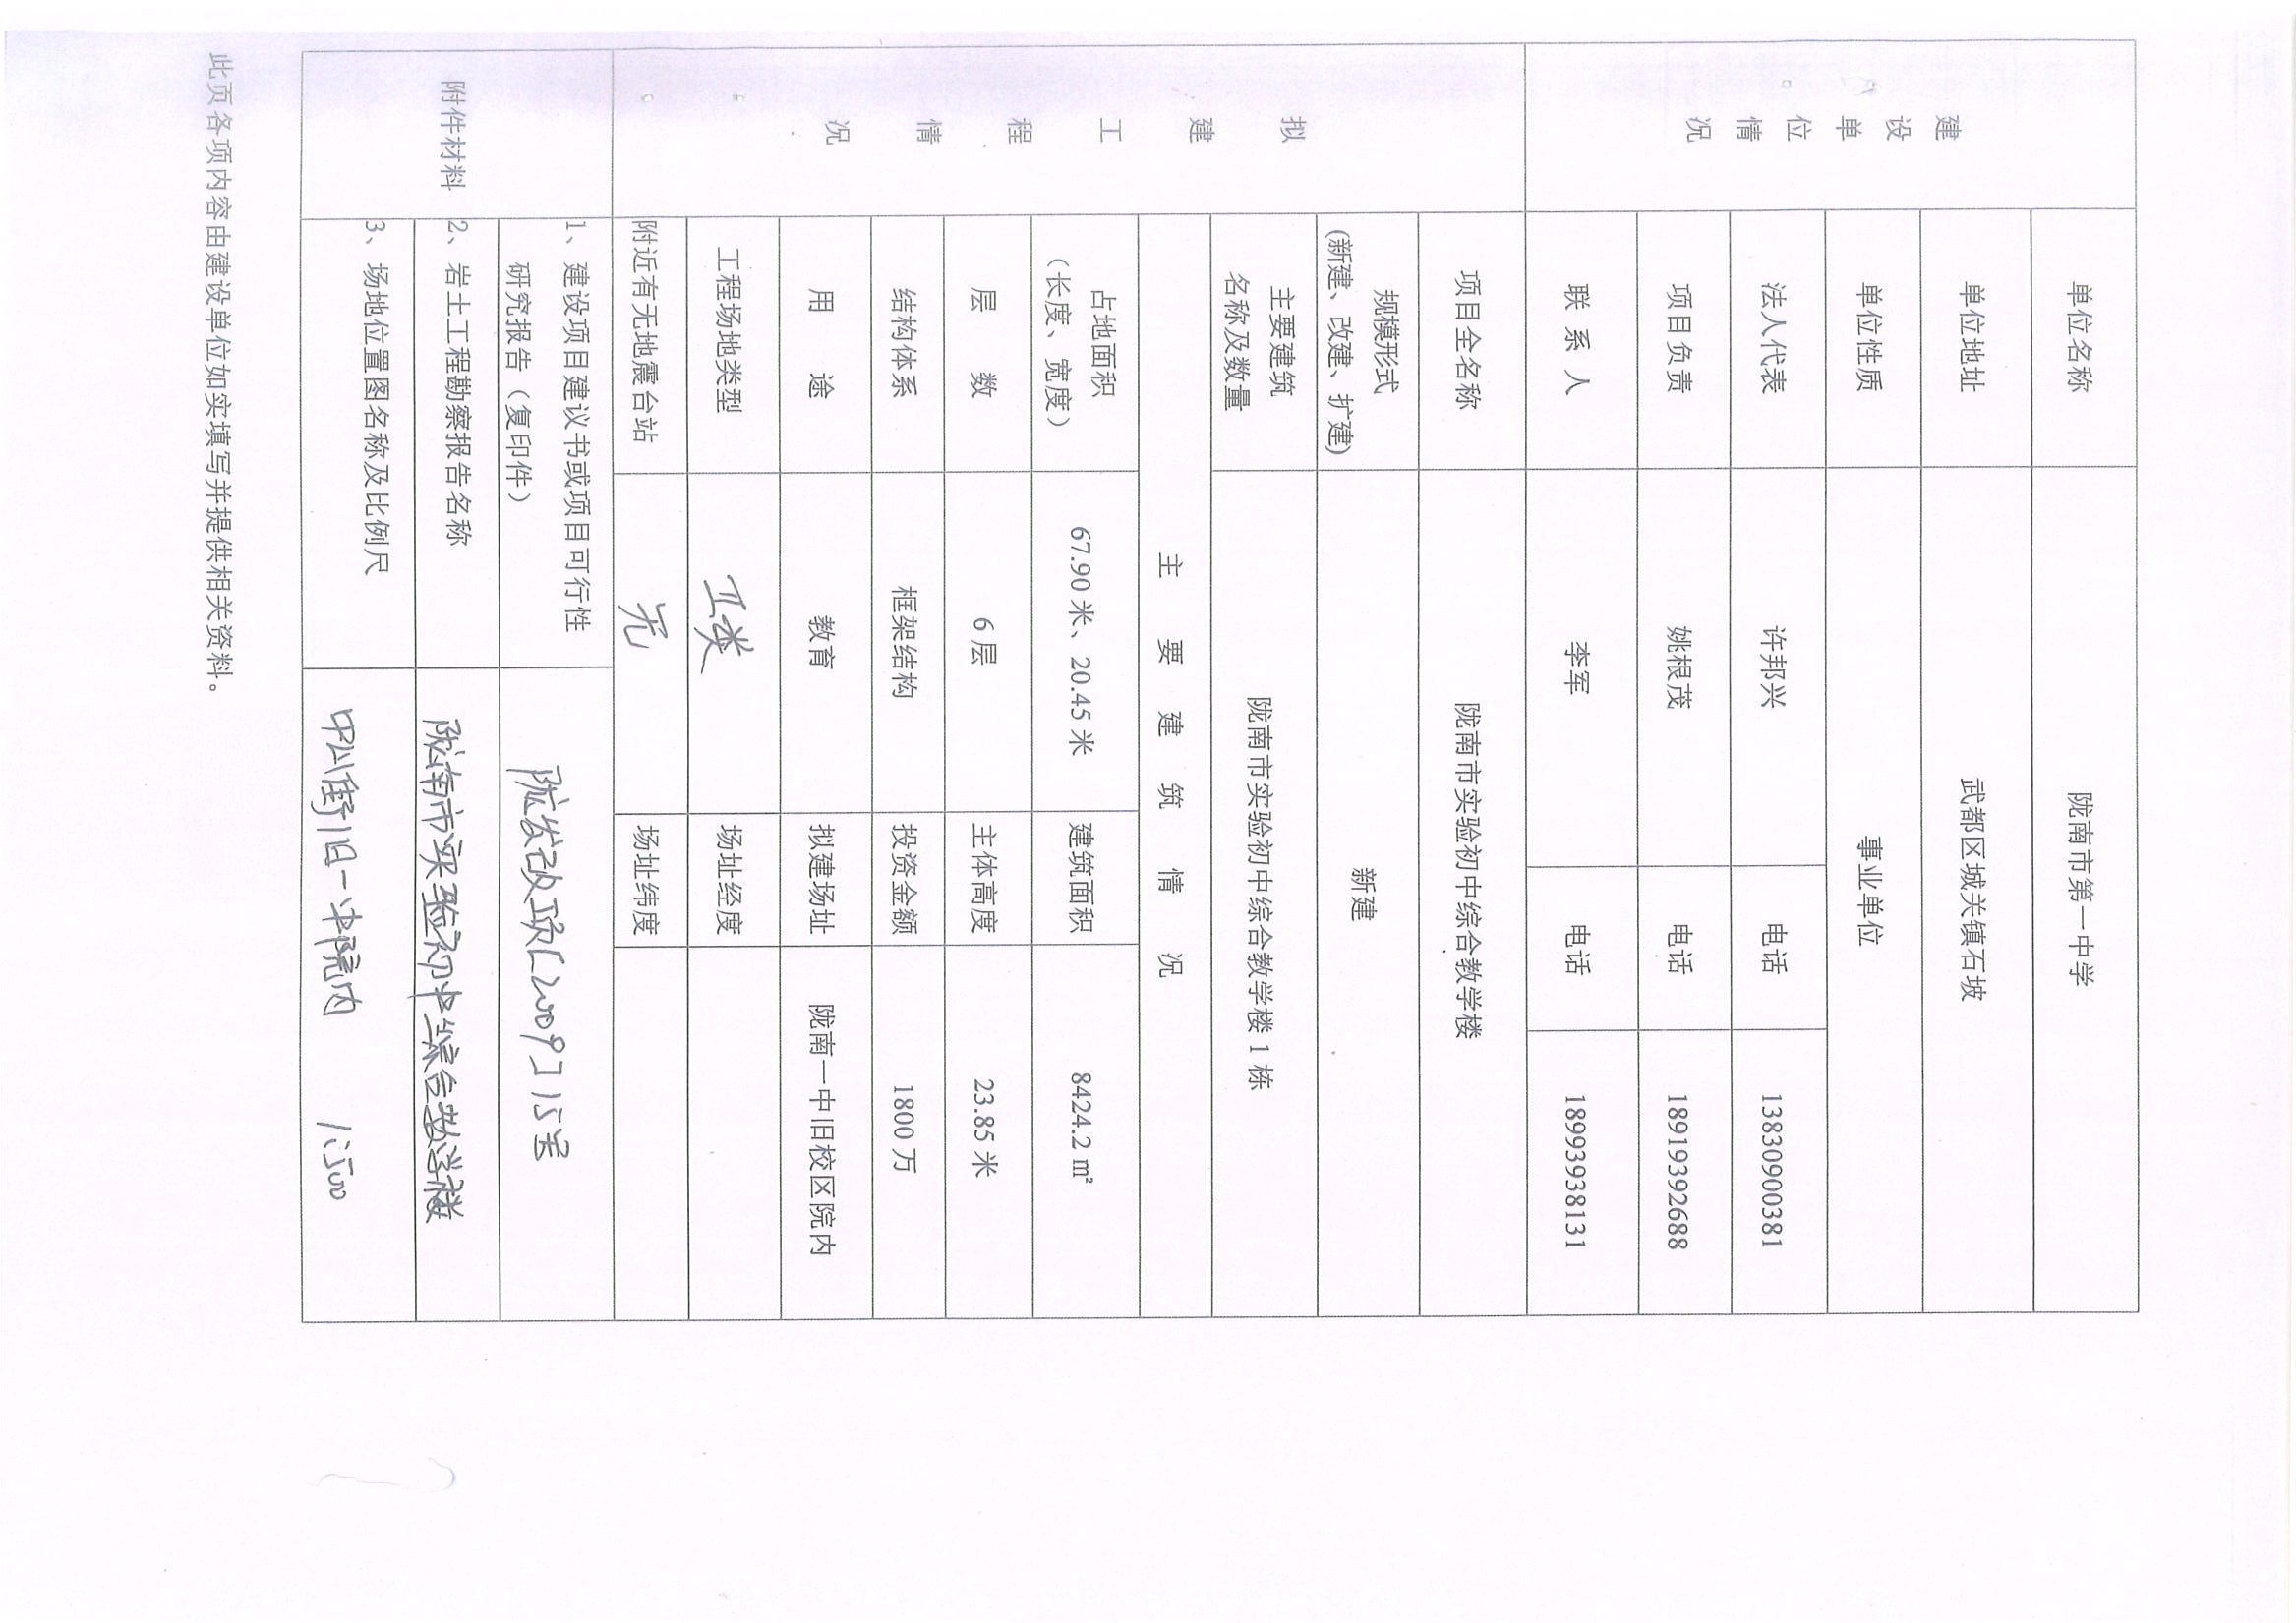 建设单位情况
单位名称 陇南市第一中学
单位地址 武都区城关镇石坡
单位性质 事业单位
法人代表 许邦兴 电话 13830900381
项目负责 姚根茂 电话 18919392688
联 系 人 李军 电话 18993938131
拟建工程情况
项目全名称 陇南市实验初中综合教学楼
规模形式
(新建、改建、扩建) 新建
主要建筑
名称及数量 陇南市实验初中综合教学楼 1 栋
主 要 建 筑 情 况
占地面积
（长度、宽度） 67.90 米、20.45 米 建筑面积 8424.2 ㎡
层 数 6 层 主体高度 23.85 米
结构体系 框架结构 投资金额 1800 万
用 途 教育 拟建场址 陇南一中旧校区院内
工程场地类型 II类 场址经度
附近有无地震台站 无 场址纬度
附件材料
1、建设项目建议书或项目可行性
研究报告（复印件） 陇发改项[2009]15号
2、岩土工程勘察报告名称 陇南市实验初中综合教学楼
3、场地位置图名称及比例尺 中山街旧一中院内 1:500
此页各项内容由建设单位如实填写并提供相关资料。